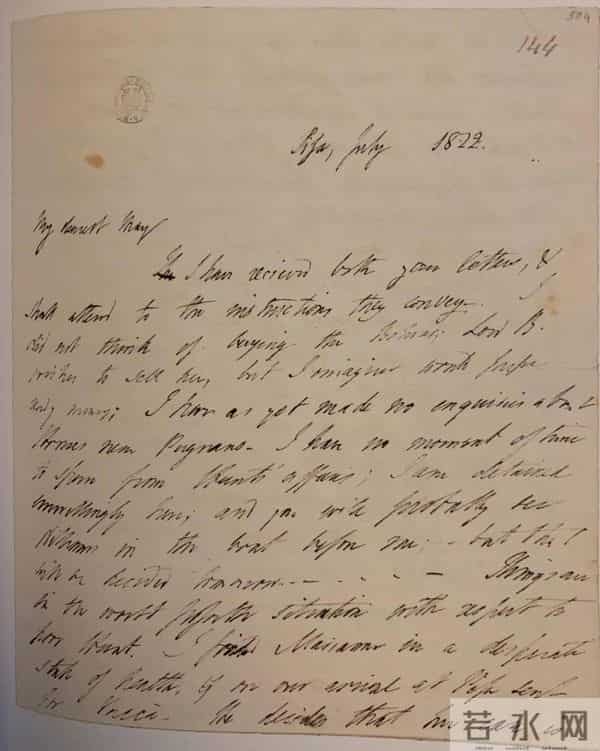 144
Pisa, July 1822.
My dearest Mary
I have recieved both your letters, &
shall attend to the instructions they convey. I
did not think of buying the Bolivar; Lord B.
wishes to sell her, but I imagine would prefer
ready money; I have as yet made no enquiries about
houses near Pugnano - I have no moment of time
to spare from Hunt's affairs; I am detained
unwillingly here; and you will probably see
Williams in the boat before me; - but that
will be decided tomorrow. - - - - Things are
in the worst possible situation with respect to
poor Hunt. I find Marianne in a desperate
state of health, & on our arrival at Pisa sent
for Vaccà. He decides that her case is
若水网